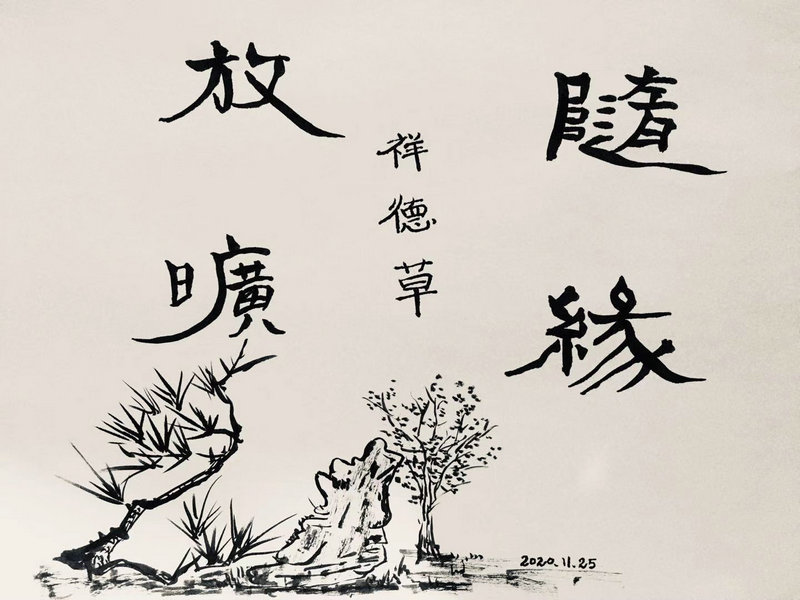 隨緣
放曠
祥德草
2020.11.25